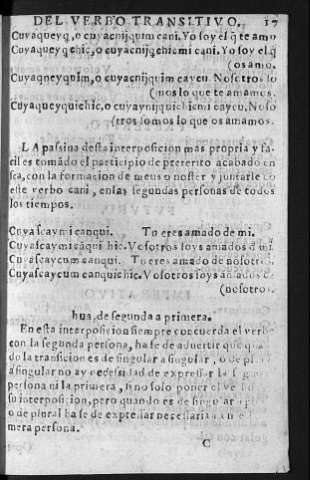 DEL VERBO TRANSITIVO. 17
Cuyaqueyq, o cuyacnijquimi cani. Yo soy el q̃ te amo
Cuyaqueyq chic, o cuyacnijq̃chic mi cani. Yo soy el q̃
(os amo.
Cuyaqneyquim, o cuyacnijquim caycu. Nosotros lo
(mos lo que te amamos.
Cuyaqueyquichic, o cuyaynijquichicmi caycu. Noso
(tros somos lo que os amamos.
LA passina desta interposicion mas propria y fa-
cil es tomãdo el participio de preterito acabado en
sca, con la formacion de meus o noster y juntarle cõ
este verbo cani, en las segundas personas de todos
los tiempos.
Cuyascaymi canqui. Tu eres amado de mi.
Cuyascaymi cãqui chic. Vosotros soys amados d mi.
Cuyascaycum canqui. Tu eres amado de nosotros.
Cuyascaycum canquichic. Vosotros soys amados de
(nosotros.
hua, de segunda a primera.
En esta interposicion siempre concuerda el verbo
con la segunda persona, ha se de advertir que quã
do la transicion es de singular a singular, o de plural
a singular no ay necessidad de expressar la segunda
persona ni la primera, sino solo poner el verbo
su interposicion, pero quando es de singular a plural
o de plural ha se de expressar necessariamente
mera persona.
C